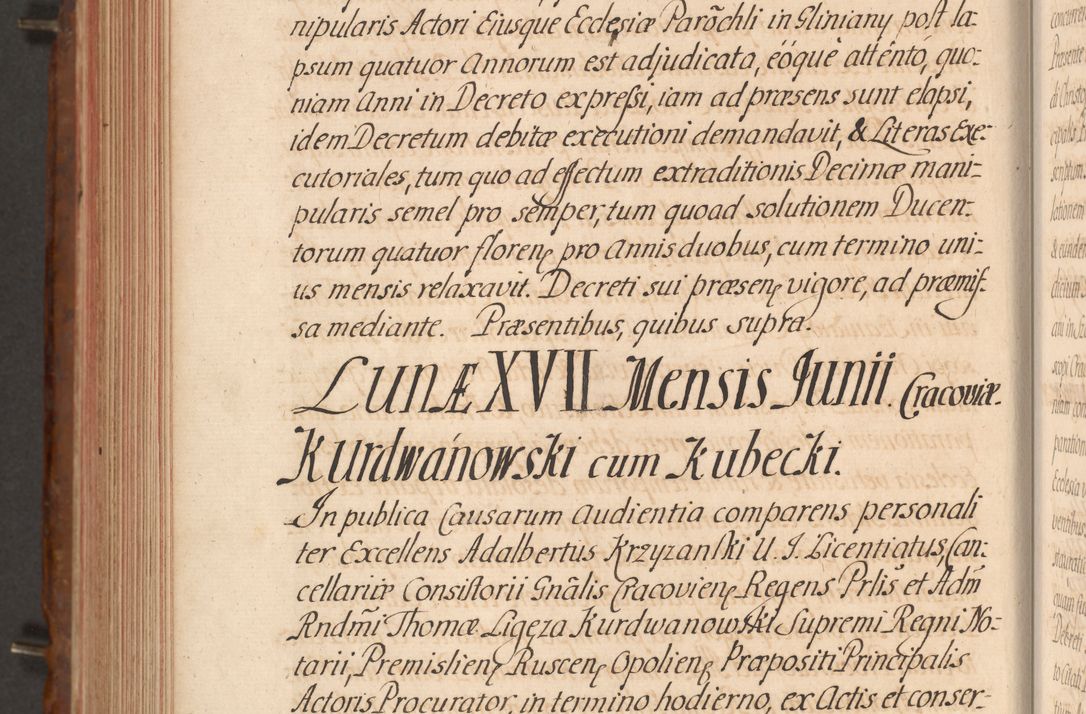 nipularis Actori Eiusque Ecclesiæ Parõchli in Gliniany post la=
psum quatuor Annorum est adjudicata, eóquè atténtó, quo=
niam Anni in Decreto expreſsi, iam ad præsens sunt elapsi,
idem Decretum debitæ executioni demandavit, & Literas Exe=
cutoriales, tum quo ad effectum extraditionis Decimæ mani=
pularis semel pro semper, tum quoad solutionem Ducen=
torum quatuor florenę pro Annis duobus, cum termino uni=
us mensis relaxavit. Decreti sui præsenę vigore, ad præmiſ=
sa mediante. Præsentibus, quibus supra.
LUNÆ XVII Mensis Junii. Cracoviæ.
Kurdwánowski cum Kubecki.
In publica Causarum Audientia comparens personali
ter Excellens Adalbertus Krzyzanſki U. J. Licentiatus, Can=
cellariæ Consiſtorii Gnãlis Cracovienę Regens Prlis et Adm̃
Rndm̃i Thomæ Ligęza Kurdwanowſki Supremi Regni No=
tarii, Premislienę Ruscenę Opolienę Præpositi Principalis
Actoris Procurator, in termino hodierno, ex Actis et conser=